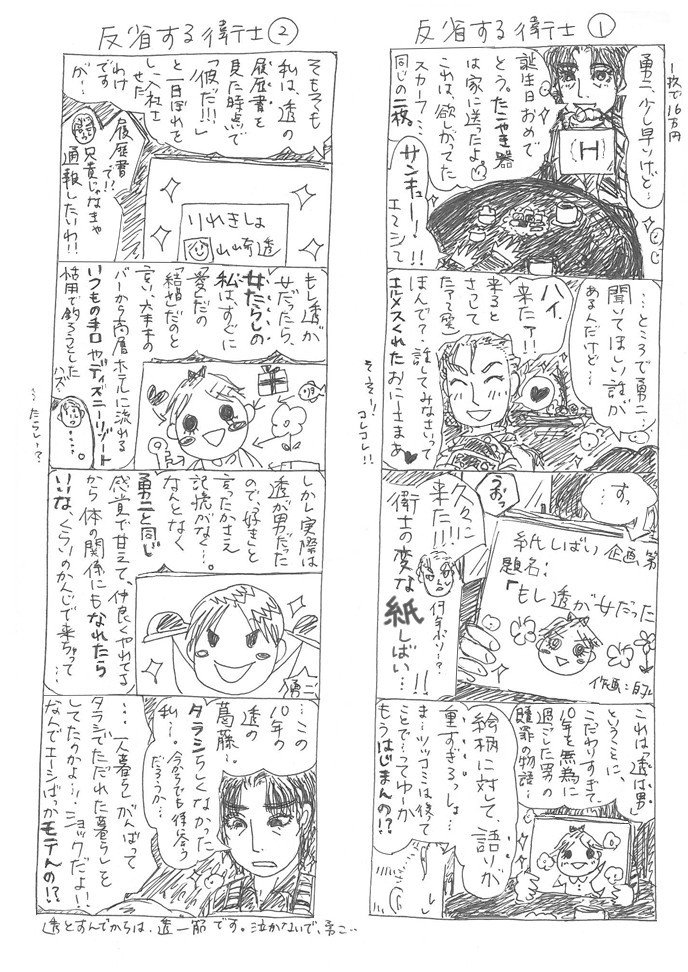 反省する衛士①
勇二、少し早いけど…
誕生日おめで
とう。たこやき器
は家に送ったよ。
これは、欲しがってた
スカーフ…
同じの二枚。
1枚で16万円
H
サンキュー!!
…ところで勇二…
聞いてほしい話が
あるんだけど…
ハイ、
来たァ!!
来ると
さって
ほんで?、話してみなさいって
エルメスくれたおにーさまぁ
そーそー!
コレコレ!!
すっ…
おっ
久々に
来た!!!
衛士の変な
紙しばい…!!
何年ぶり…?
紙しばい企画第
題名:
「もし透が女だった
これは「透は男」
ということに、
こだわりすぎて
10年を無為に
過ごした男の
贖罪の物語…
絵柄に対して、語りが
重すぎるっしょ…
ま…ツッコミは後って
ことで…ってゆーか
もうはじまんの!?
反省する衛士②
そもそも
私は、透の
履歴書を
見た時点で
「彼だ!!!」
と一目ぼれを
し、入社さ
せた
わけ
です
が…
履歴書
で!?
兄貴じゃなきゃ
通報したいわ!!
りれきしょ
山崎透
もし透が
女だったら、
女たらしの
私は、すぐに
愛だの
結婚だのと
言い、大手の
バーから高層ホテルに流れる
いつもの手口やディズニーリゾート
…たらし…?
しかし実際は
透が男だった
ので、好きこと
言ったかさえ
記憶がなく…。
なんとなく
勇二と同じ
感覚で甘えて、仲良くやれてる
から体の関係にもなれたら
いいな、くらいのかんじで来ちゃって…
勇二
…この
10年の
透の
葛藤…。
タラシらしくなかった
私…。
今からでも間に合う
だろうか…
…一人暮らし、がんばって
タラシでただれた暮らしを
してたのかよ…、ショックだよ!!
なんでエーシばっかモテんの!?
透とすんでからは、透一筋です。泣かないで、勇二…